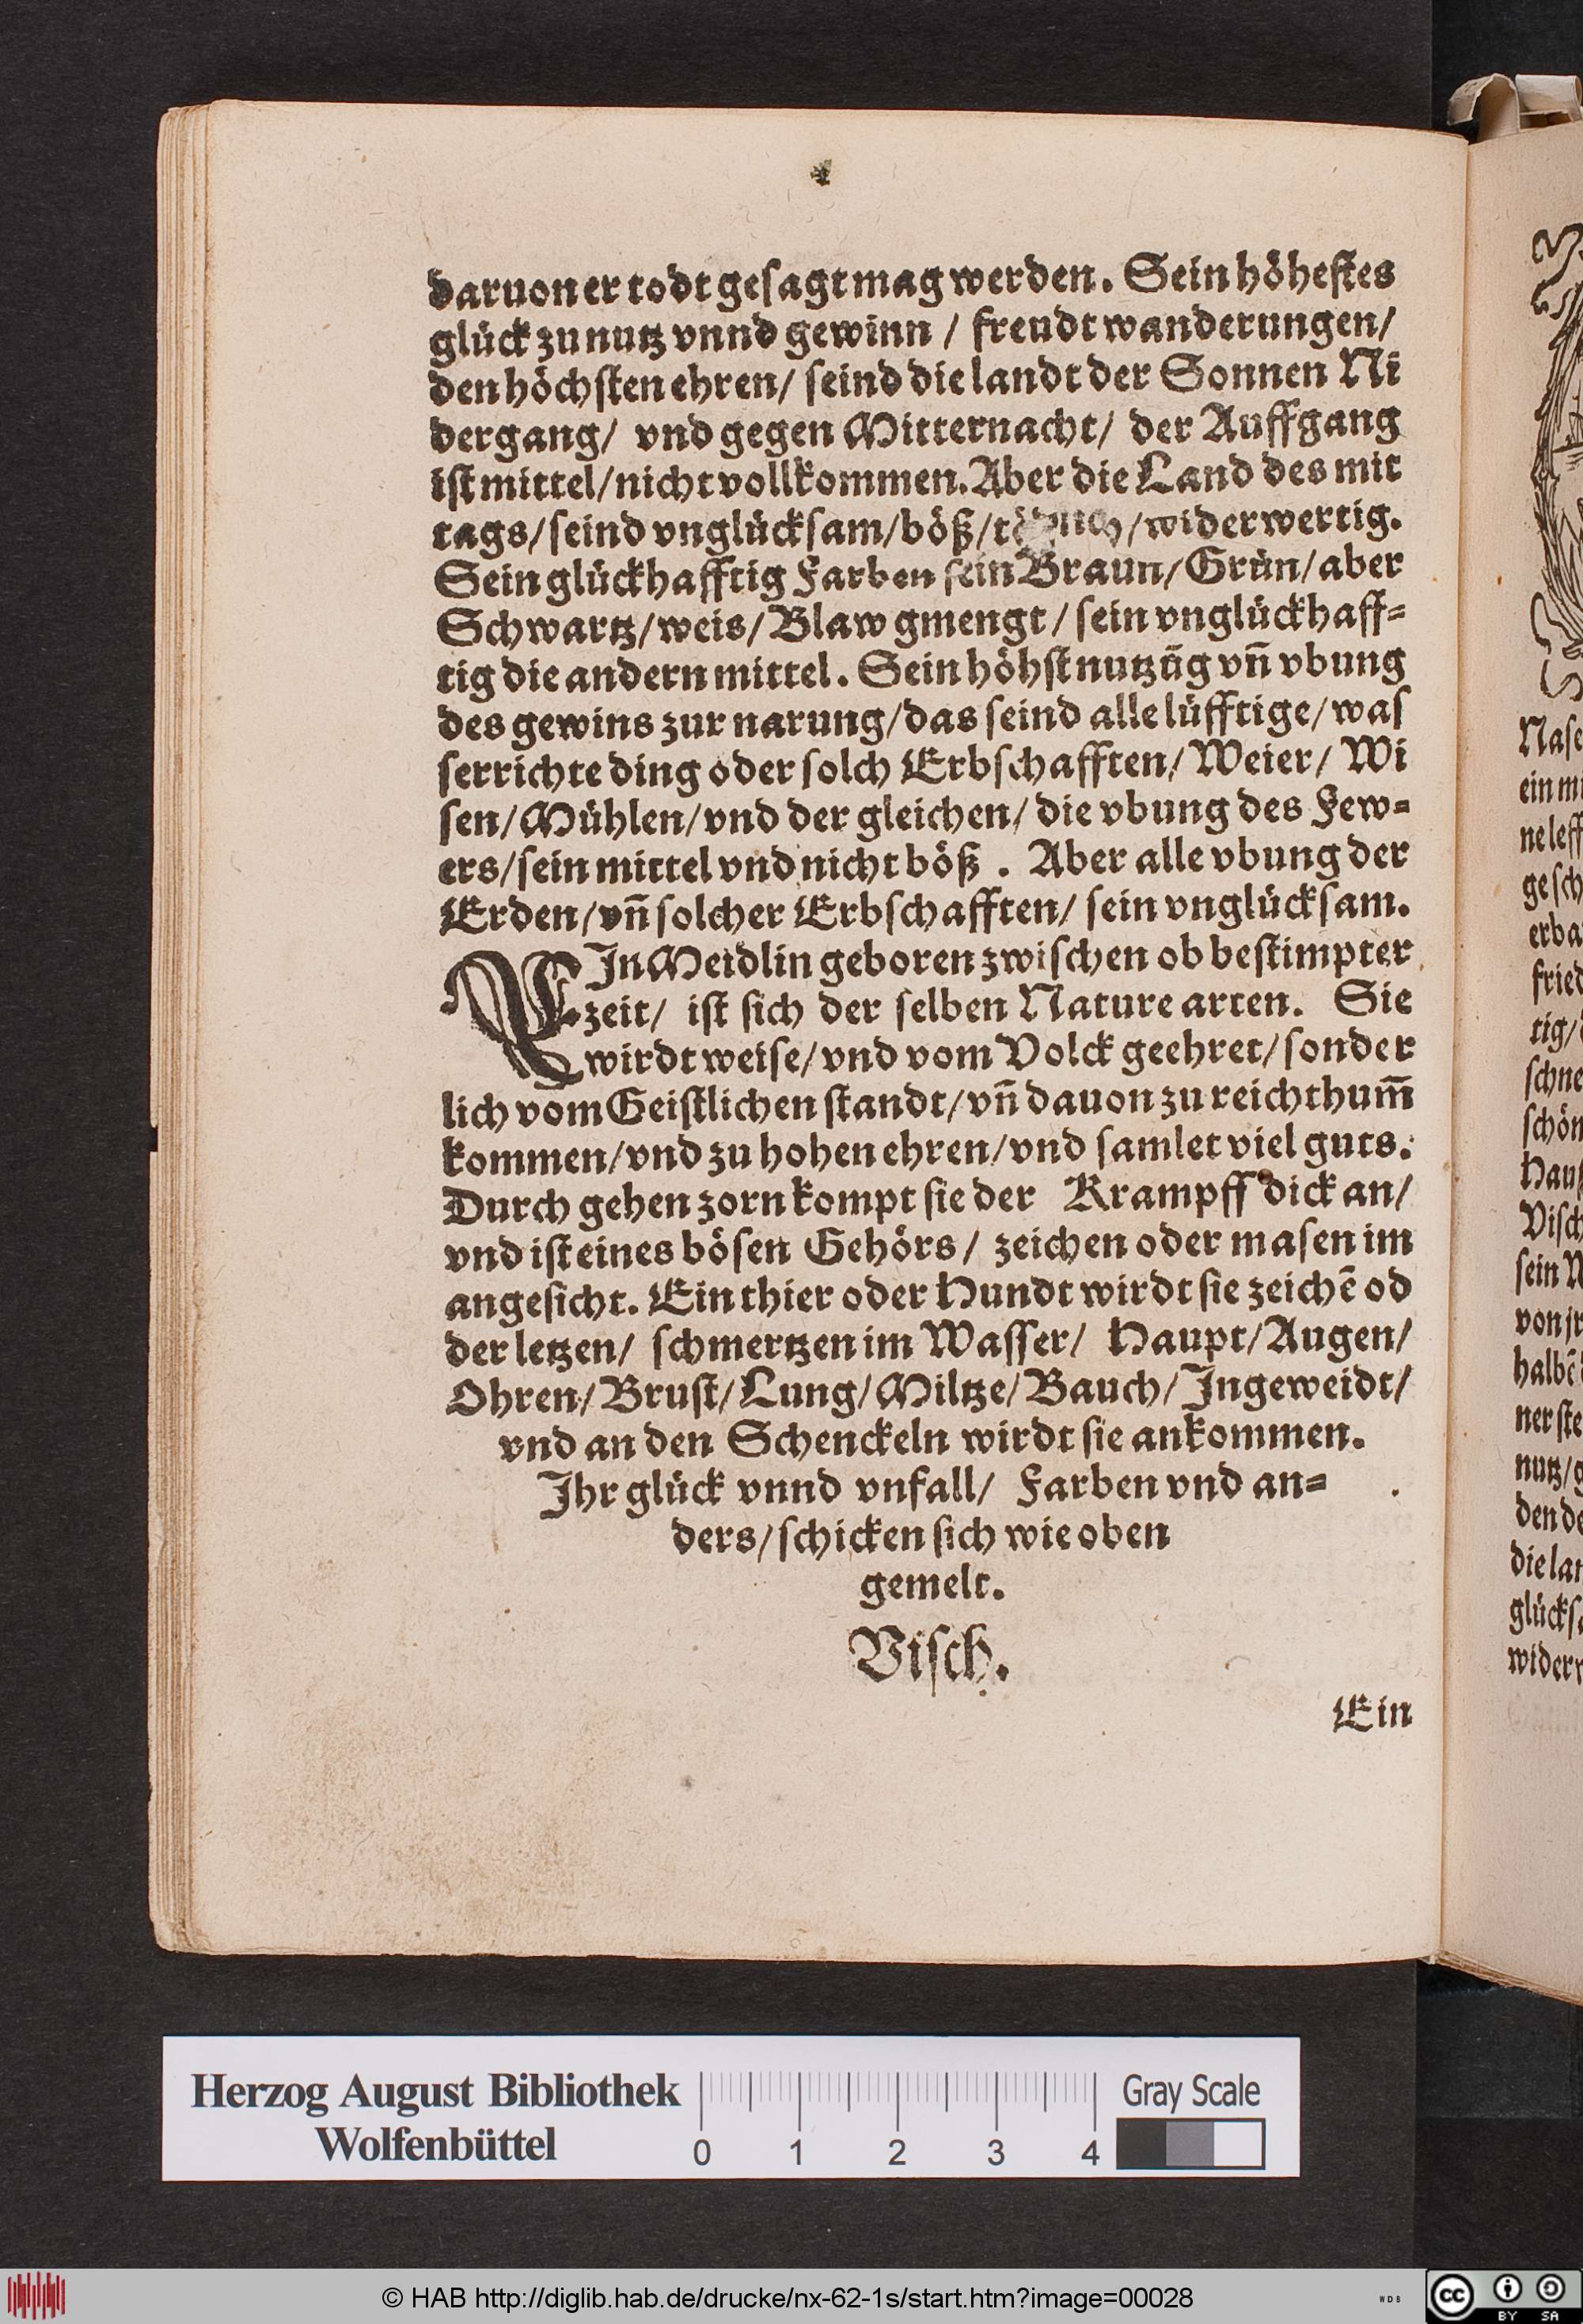 daruon er todt gesagt mag werden. Sein höhestes
glück zu nutz vnnd gewinn / freudt wanderungen/
den höchsten ehren/ seind die landt der Sonnen Ni
dergang/ vnd gegen Mitternacht/ der Auffgang
ist mittel/nicht vollkommen. Aber die Land des mit
tags/seind vnglücksam/böß/tödtlich/widerwertig.
Sein glückhafftig Farben sein Braun/Grün/aber
Schwartz/weis/Blaw gmengt/sein vnglückhaff=
tig die andern mittel. Sein höhst nutzūg vñ vbung
des gewins zur narung/das seind alle lüfftige/was
serrichte ding oder solch Erbschafften/Weier/Wi
sen/Mühlen/vnd der gleichen/die vbung des Few=
ers/sein mittel vnd nicht böß. Aber alle vbung der
Erden/vñ solcher Erbschafften/ sein vnglücksam.
EIn Meidlin geboren zwischen ob bestimpter
zeit/ ist sich der selben Nature arten. Sie
wirdt weise/vnd vom Volck geehret/sonder
lich vom Geistlichen standt/vñ dauon zu reichthum̄
kommen/vnd zu hohen ehren/vnd samlet viel guts.
Durch gehen zorn kompt sie der Krampff dick an/
vnd ist eines bösen Gehörs/ zeichen oder masen im
angesicht. Ein thier oder Hundt wirdt sie zeichē od
der letzen/ schmertzen im Wasser/ Haupt/Augen/
Ohren/Brust/Lung/Miltze/Bauch/Ingeweidt/
vnd an den Schenckeln wirdt sie ankommen.
Ihr glück vnnd vnfall/ Farben vnd an=
ders/schicken sich wie oben
gemelt.
Visch.
Ein
Nase
ein m
ne leff
gesch
erba
fried
tig/
schne
schön
Hauß
Visch
sein N
von jr
halbē
ner ste
nutz/g
den de
die lan
glücks
widerw
Herzog August Bibliothek
Wolfenbüttel
0 1 2 3 4
Gray Scale
© HAB http://diglib.hab.de/drucke/nx-62-1s/start.htm?image=00028
WDB
cc BY SA